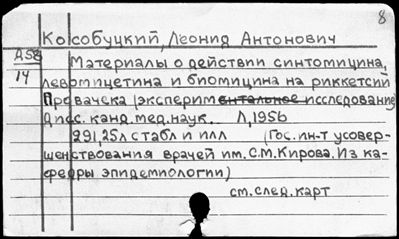 8
Кособуцкий, Леонид Антонович
А58
14
Материалы о действии синтомицина,
левомицетина и биомицина на риккетсий
Провачека (экспериментальное исследование)
Дисс. канд. мед. наук. Л, 1956
291, 25л с табл и илл (Гос. ин-т усовер-
шенствования врачей им. С.М. Кирова. Из ка-
федры эпидемиологии)
см. след. карт